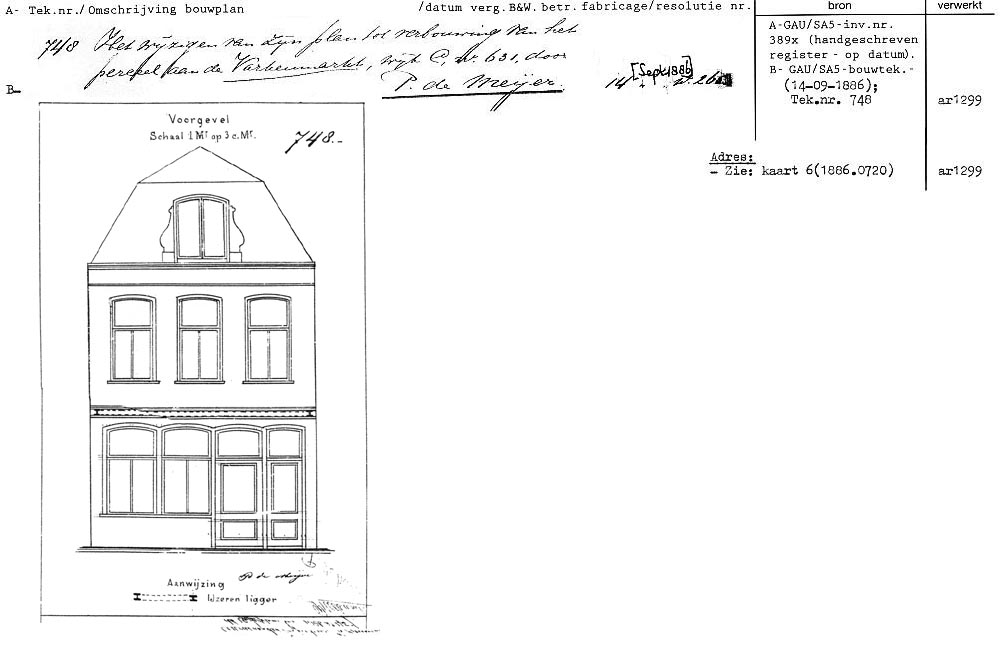 A- Tek.nr./Omschrijving bouwplan /datum verg.B&W. betr.fabricage/resolutie nr. bron verwerkt
748 Het wijzigen van zijn plan tot verbouwing van het
perceel aan de Varkenmarkt, wijk C, nr. 631, door
P. de Meijer. 14 [Sept 1886]
A-GAU/SA5-inv.nr.
389x (handgeschreven
register - op datum).
B- GAU/SA5-bouwtek.-
(14-09-1886);
Tek.nr. 748 ar1299
Adres:
- Zie: kaart 6(1886.0720) ar1299
B-
Voorgevel
Schaal 1 Mr op 3 c.Mr.
748.-
P de Meijer
Aanwijzing
IJzeren ligger